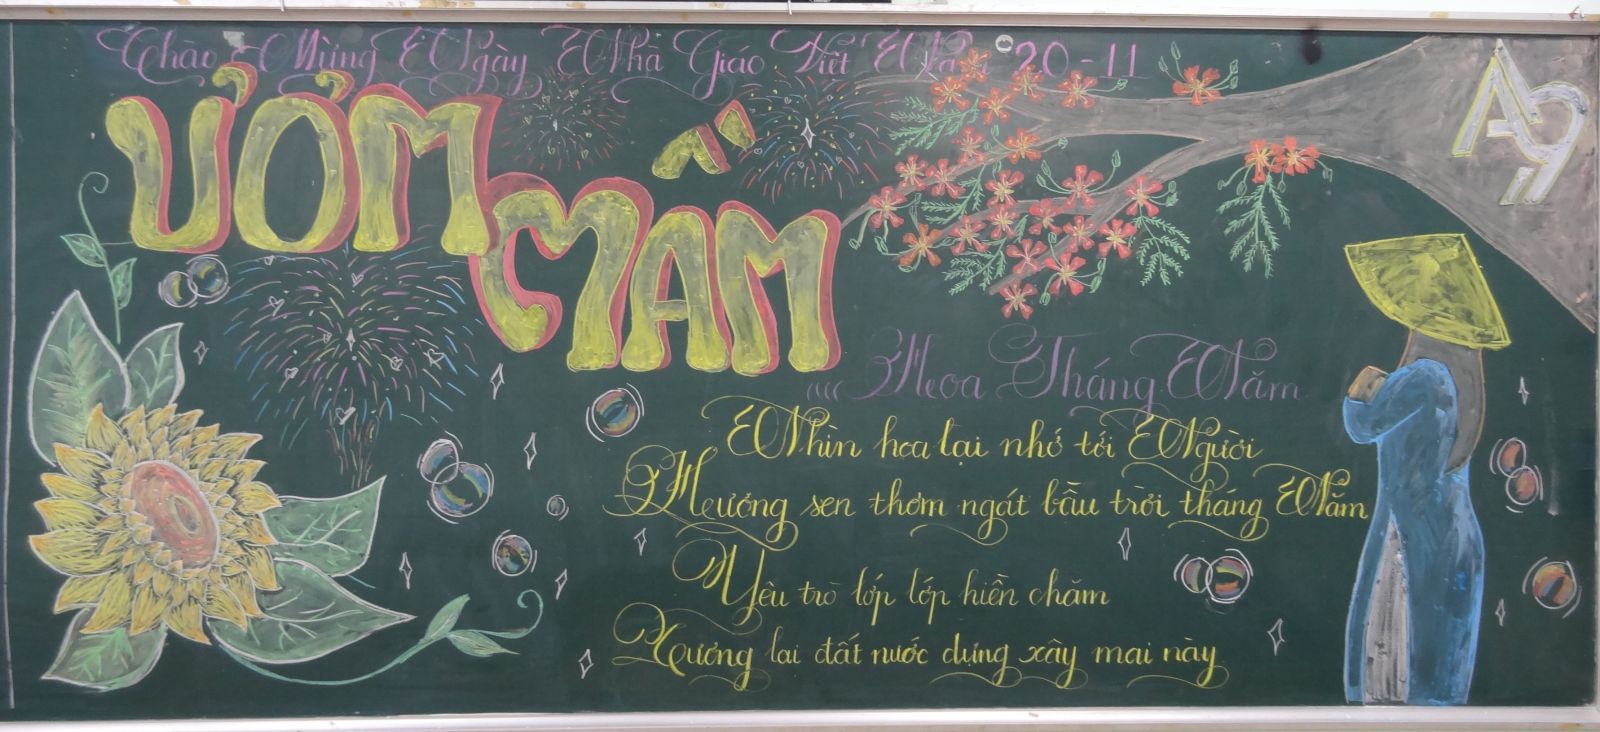 Chào Mừng Ngày Nhà Giáo Việt Nam 20-11
A9
ƯƠM
MẦM
Hoa Tháng Năm
Nhìn hoa lại nhớ tới Người
Hương sen thơm ngát bầu trời tháng Năm
Yêu trò lớp lớp hiền chăm
Tương lai đất nước dựng xây mai này